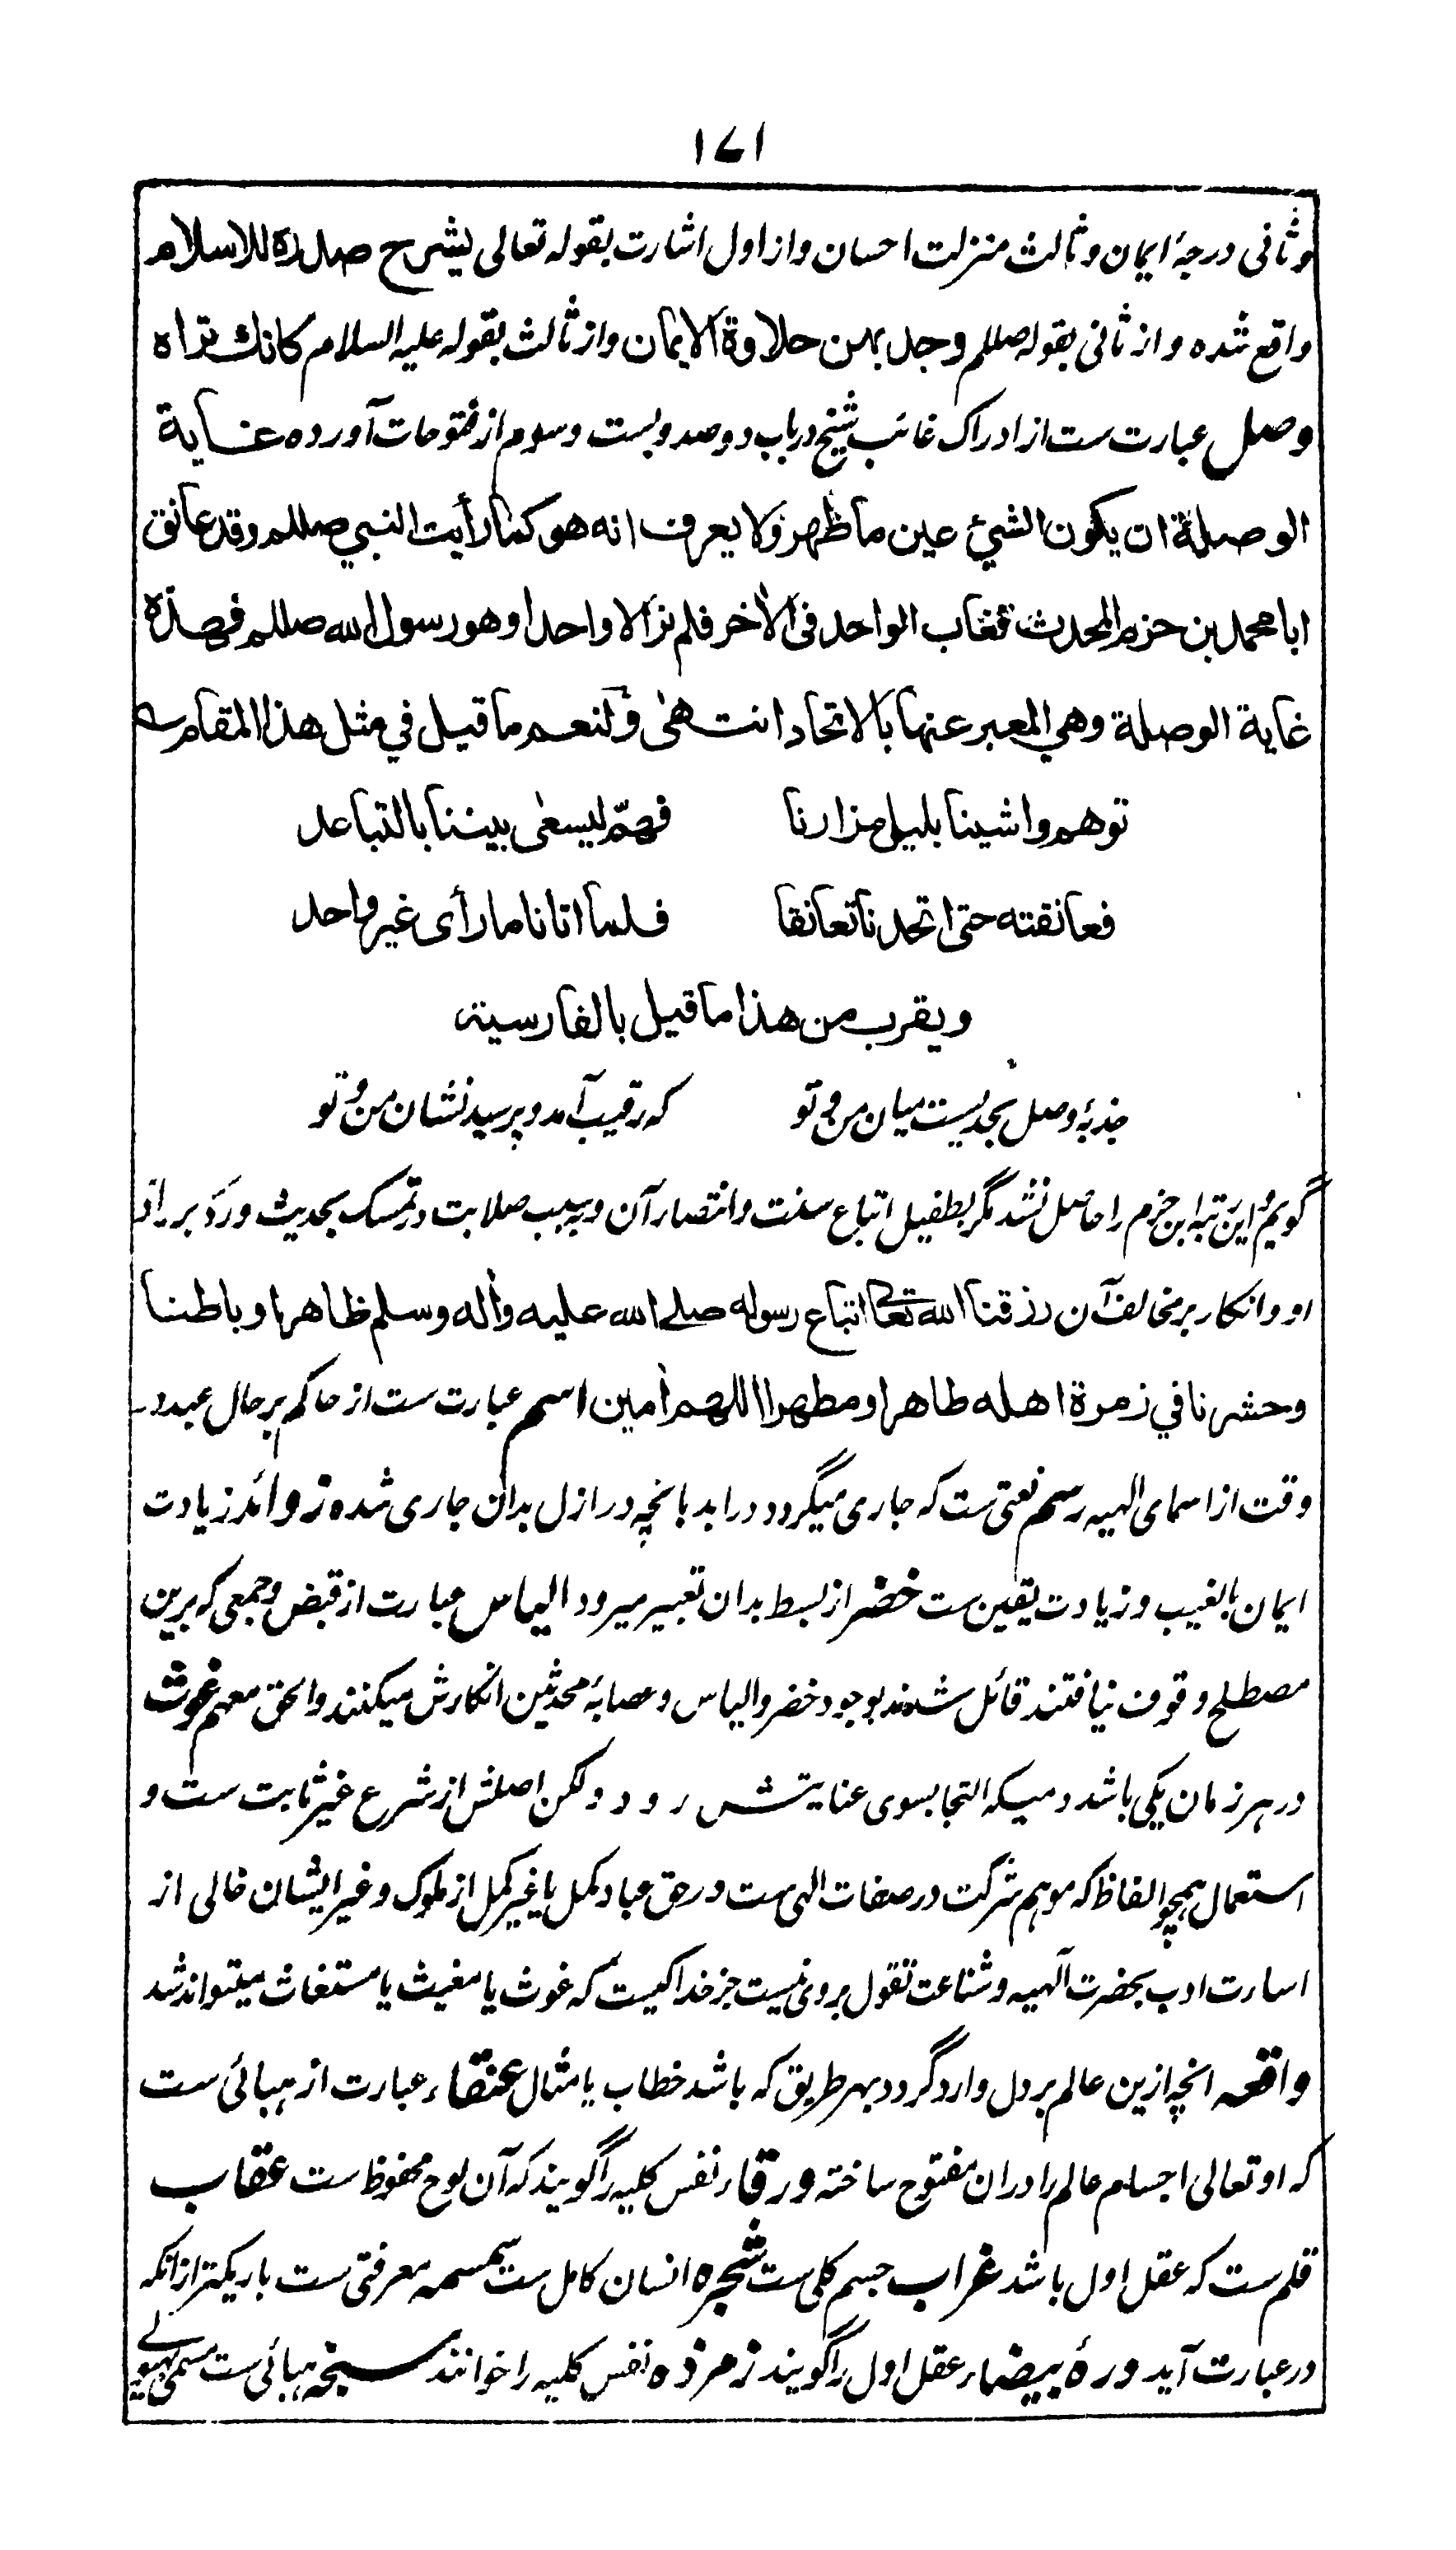 ۱۷۱
وثانی درجۀ ایمان وثالث منزلت احسان واز اول اشارت بقوله تعالی یشرح صدره للاسلام
واقع شده و از ثانی بقوله صللم وجد بهن حلاوة الایمان واز ثالث بقوله علیه السلام کانك تراه
وصل عبارت ست از ادراک غائب شیخ در باب دو صد و بست وسوم از فتوحات آورده غایة
الوصلة ان یکون الشیٔ عین ما ظهر ولا یعرف انه هو کما رأیت النبی صللم وقد عانق
ابا محمد بن حزم المحدث فغاب الواحد فی الاٰخر فلم نر الا واحدا وهو رسول الله صللم فهذه
غایة الوصلة وهی المعبر عنها بالاتحاد انتهی ولنعم ما قیل فی مثل هذا المقام
توهم واشینا بلیل مزارنا فهمّ لیسعی بیننا بالتباعد
فعانقته حتی اتحدنا تعانقا فلما اتانا ما رأی غیر واحد
ویقرب من هذا ما قیل بالفارسیة
جذبۀ وصل بحدیست میان من و تو که رقیب آمد و پرسید نشان من و تو
گویم و این رتبه ابن حزم را حاصل نشد مگر بطفیل اتباع سنت وانتصار آن و بسبب صلابت در تمسک بحدیث ورد بر رادّ
او وانکار بر مخالف آن رزقنا الله تعالی اتباع رسوله صلی الله علیه واٰله وسلم ظاهرا وباطنا
وحشرنا فی زمرة اهله طاهرا ومطهرا اللهم اٰمین اسم عبارت ست از حاکم بر حال عبد در
وقت از اسمای الهیه رسم نعتی ست که جاری میگردد در ابد بانچه در ازل بدان جاری شده زوائد زیادت
ایمان بالغیب وزیادت یقین ست خضر از بسط بدان تعبیر میرود الیاس عبارت از قبض وجمعی که برین
مصطلح وقوف نیافتند قائل شدند بوجود خضر والیاس وعصابۀ محدثین انکارش میکنند والحق معهم غوث
در هر زمان یکی باشد دمیکه التجا بسوی عنایتش رود ولکن اصلش از شرع غیر ثابت ست و
استعمال همچو الفاظ که موهم شرکت در صفات الهی ست در حق عباد کمل یا غیر کمل از ملوک وغیر ایشان خالی از
اسارت ادب بحضرت الٓهیه وشناعت تقول بروی نیست جز خدا کیست که غوث یا مغیث یا مستغاث میتواند شد
واقعه انچه ازین عالم بر دل وارد گردد بهر طریق که باشد خطاب یا مثال عنقاء عبارت از هبائی ست
که او تعالی اجسام عالم را دران مفتوح ساخته ورقاء نفس کلیه را گویند که آن لوح محفوظ ست عقاب
قلم ست که عقل اول باشد غراب جسم کلی ست شجره انسان کامل ست سمسمه معرفتی ست باریکتر ازانکه
در عبارت آید درۀ بیضاء عقل اول را گویند زمرذه نفس کلیه را خوانند سبخه هبائی ست مسمی بهیولے